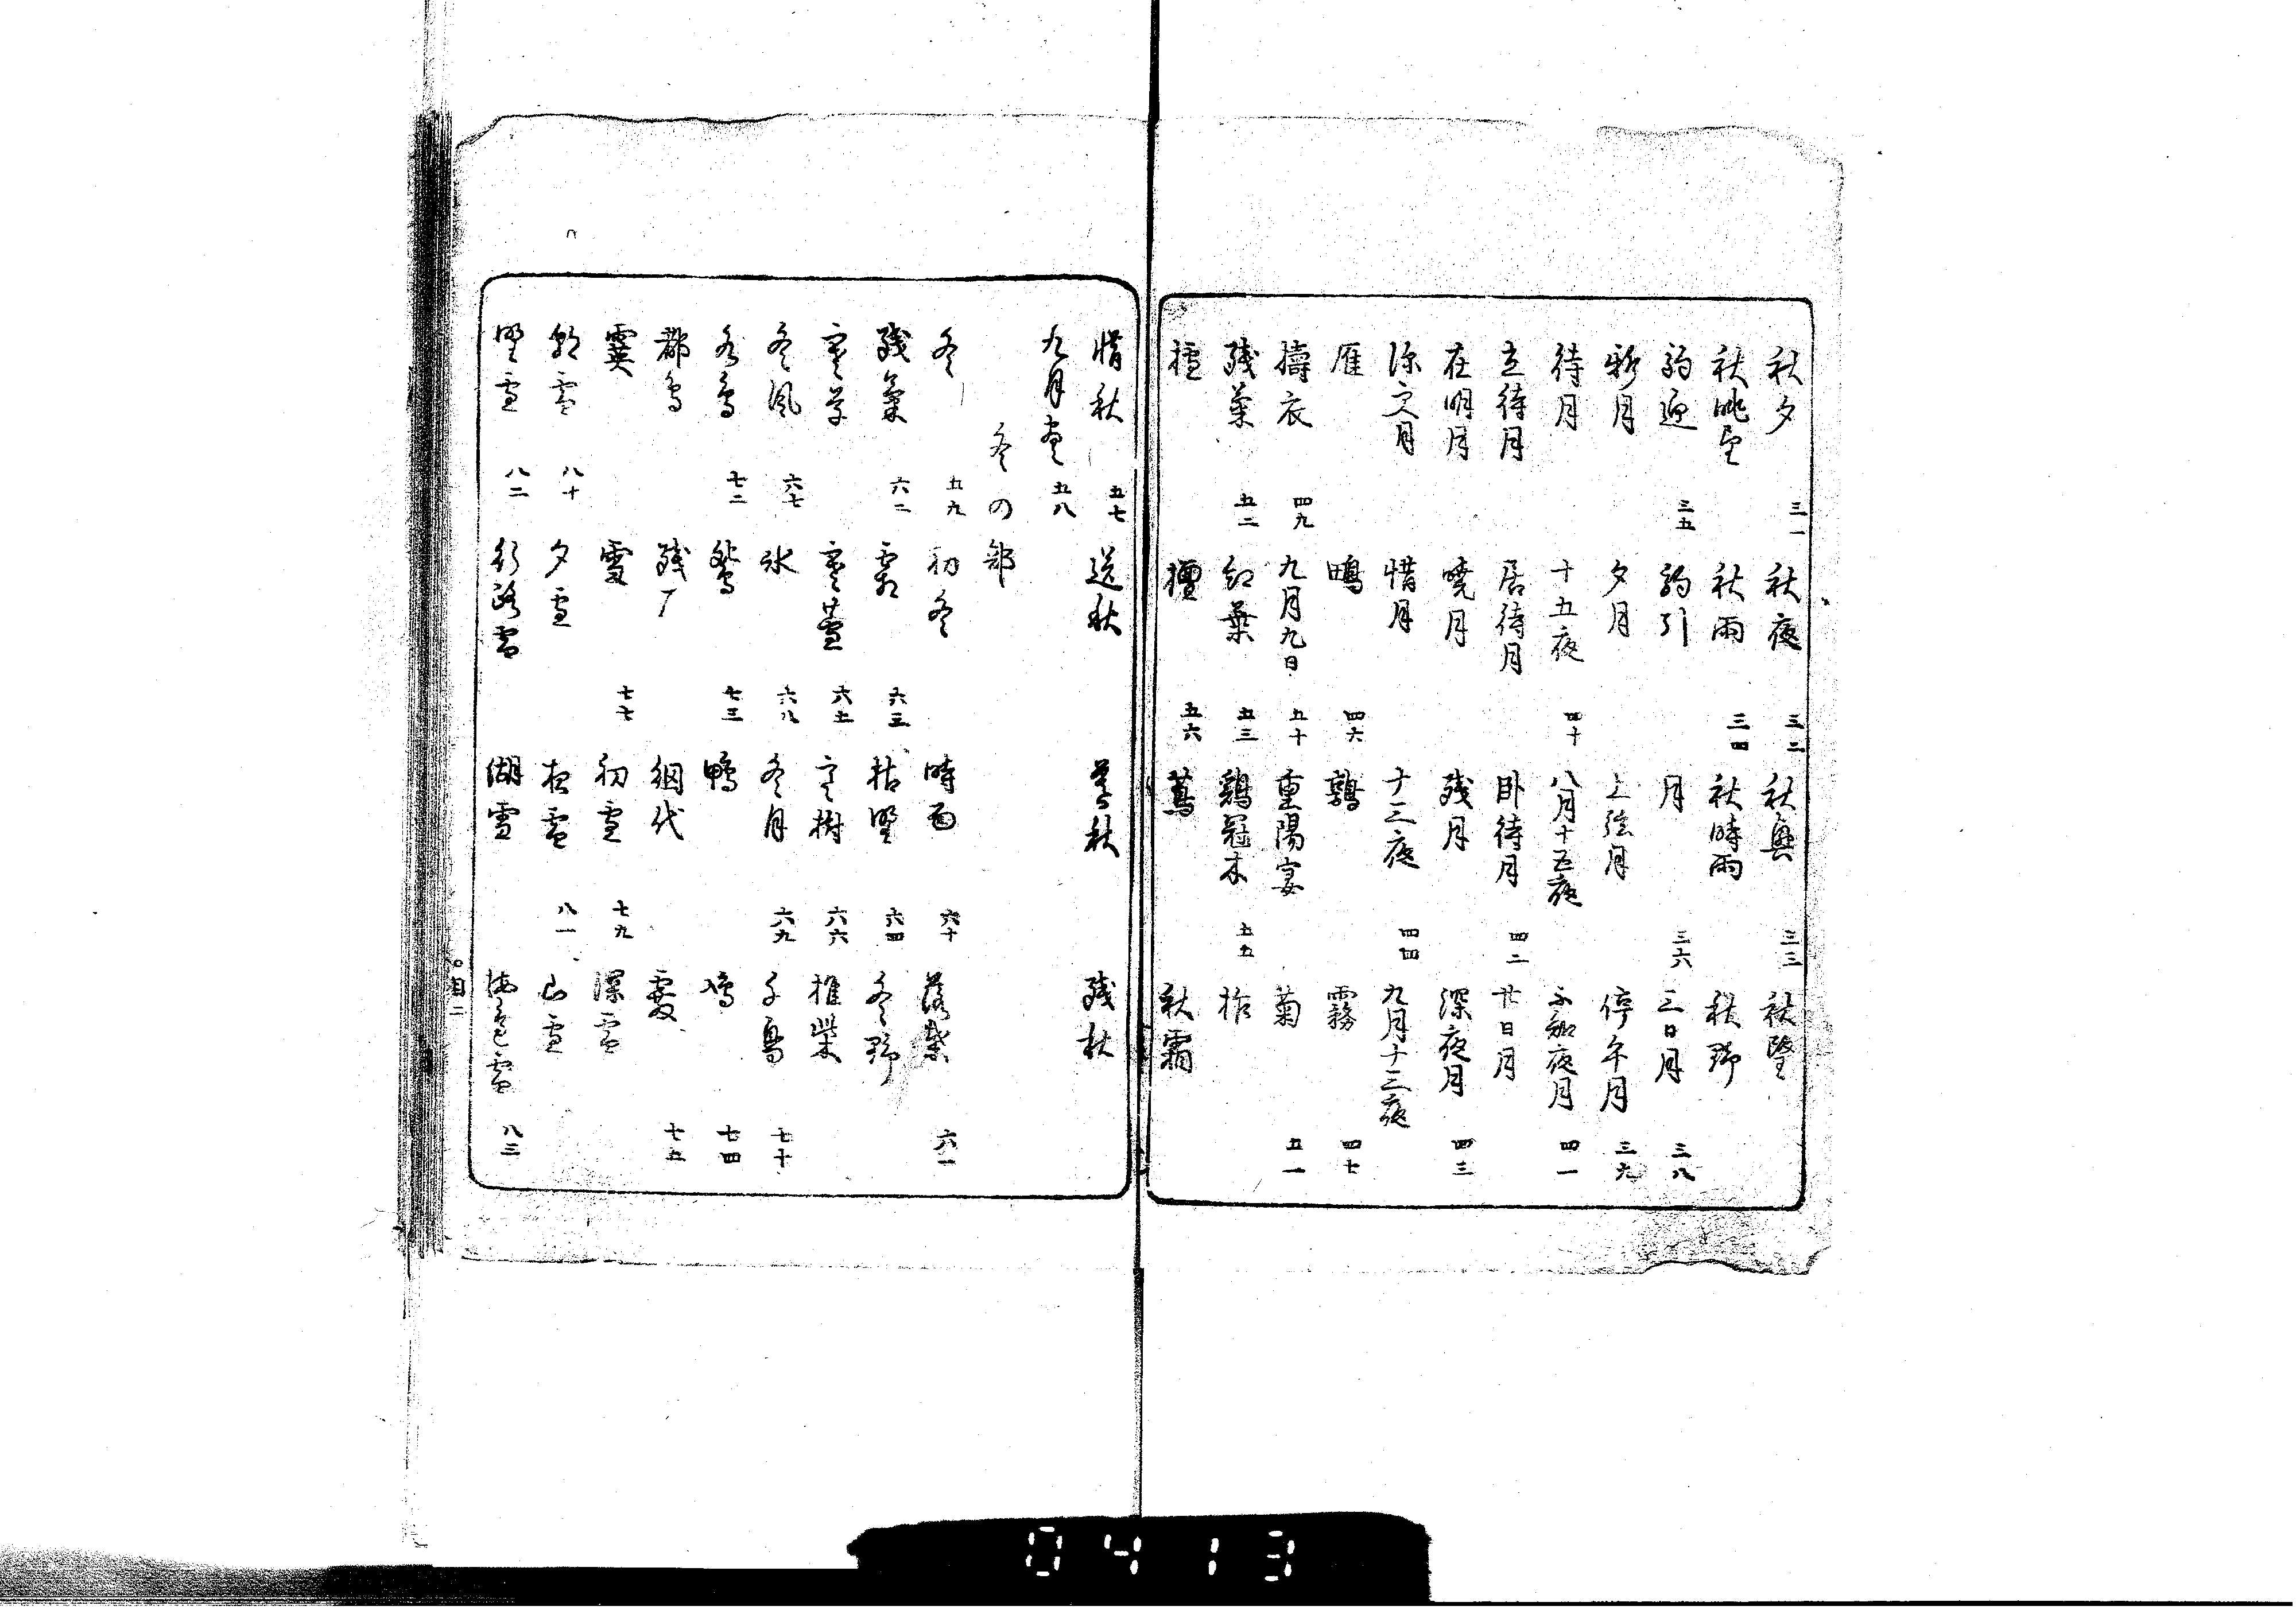 秋夕 三一 秋夜 三二 秋興 三三 秋墅
秋眺望 秋雨 三四 秋時雨 秋野
駒迎 三五 駒引 月 三六 三日月 三八
新月 夕月 上弦月 停午月 三九
待月 十五夜 四十 八月十五夜 不知夜月 四一
立待月 居待月 臥待月 四二 廿日月
在明月 暁月 残月 深夜月 四三
惜月 十三夜 四四 九月十三夜
雁 鴫 四六 鶉 霧 四七
擣衣 四九 九月九日 五十 重陽宴 菊 五一
残菊 五二 紅葉 五三 鶏冠木 五五 柞
櫨 檀 五六 蔦 秋霜
惜秋 五七 送秋 暮秋 残秋
九月尽 五八
冬の部
冬 五九 初冬 時雨 六十 落葉 六一
残菊 六二 霜 六三 枯野 六四 冬野
寒草 寒蘆 六五 寒樹 六六 椎柴
冬風 六七 氷 六八 冬月 六九 千鳥 七十
水鳥 七二 鴛 七三 鴨 鳰 七四
都鳥 残 網代 霰 七五
霙 雪 七七 初雪 七九 深雪
朝雪 八十 夕雪 夜雪 八一 山雪
野雪 八二 行路雪 湖雪 海辺雪 八三
目二
0413